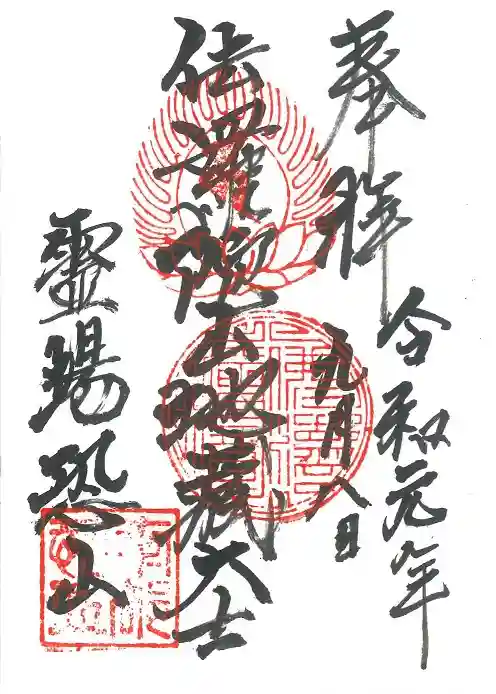 奉拝
令和元年
九月八日
佉羅陀山地蔵大士
霊場恐山